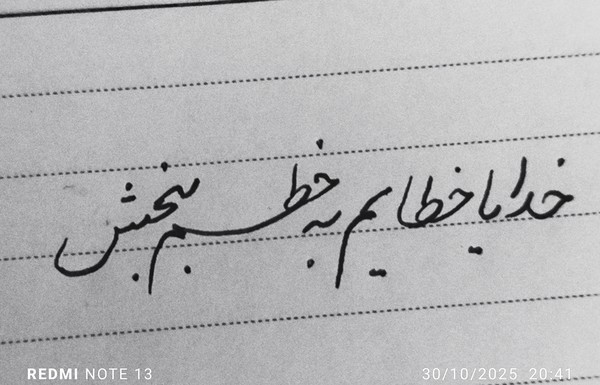 خدایا خطایم به خطم ببخش
REDMI NOTE 13
30/10/2025 20:41